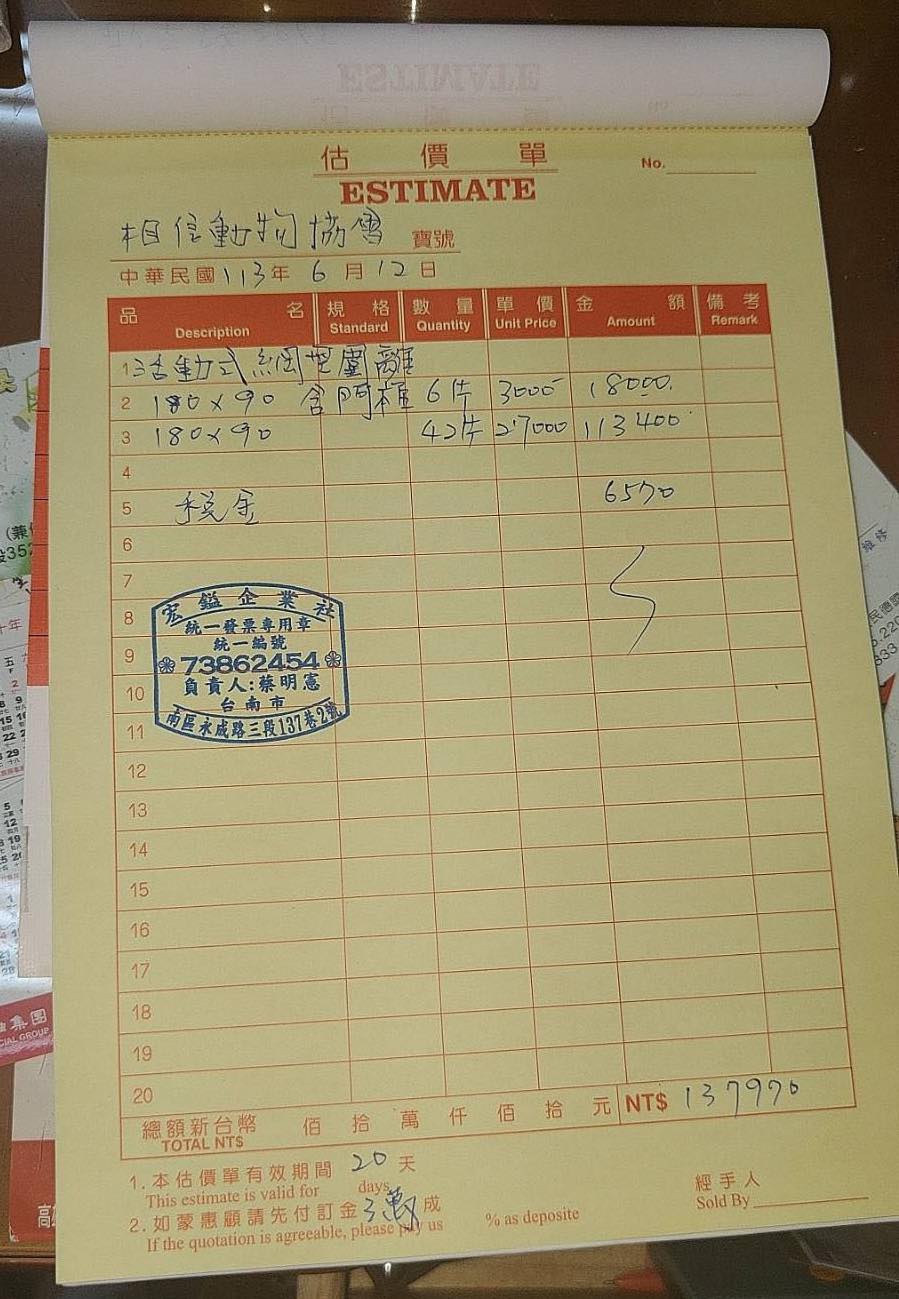 估 價 單
No.
ESTIMATE
相信動物協會 寶號
中華民國113年 6 月 12 日
品 名 規 格 數 量 單 價 金 額 備 考
Description Standard Quantity Unit Price Amount Remark
1 活動式網型圍離
2 180×90 含門框 6件 3000 18000
3 180×90 42件 27000 113400
4
5 稅金 6570
6
7
8
9
10
11
12
13
14
15
16
17
18
19
20
宏鎰企業社
統一發票專用章
統一編號
73862454
負責人:蔡明憲
台南市
南區永成路三段137巷2號
總額新台幣 佰 拾 萬 仟 佰 拾 元 NT$ 137970
TOTAL NT$
1.本估價單有效期間 20 天
This estimate is valid for days
2.如蒙惠顧請先付訂金 3萬 成
If the quotation is agreeable, please pay us % as deposite
經手人
Sold By